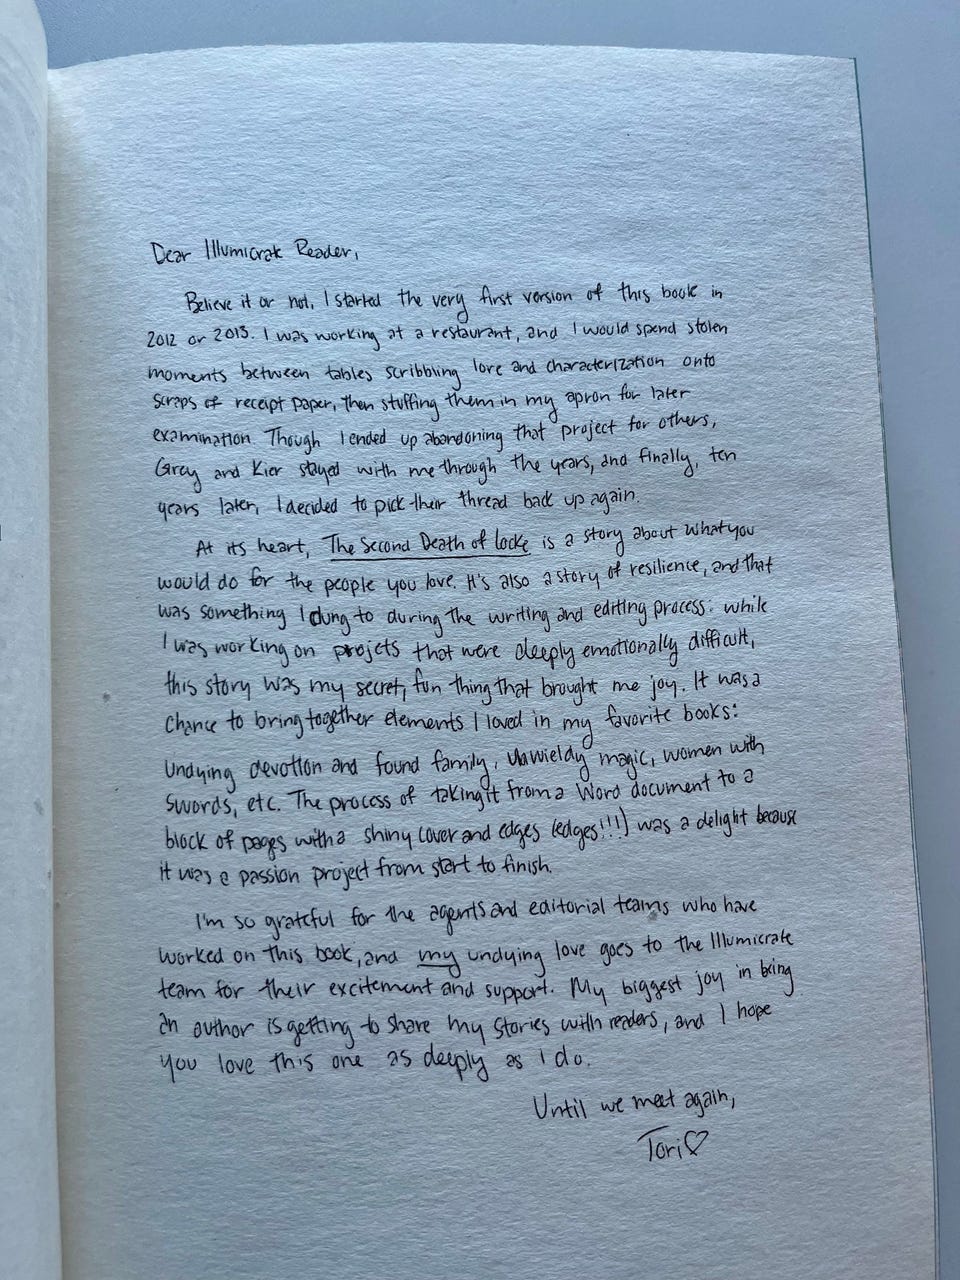 Dear Illumicrate Reader,
Believe it or not, I started the very first version of this book in
2012 or 2013. I was working at a restaurant, and I would spend stolen
moments between tables scribbling lore and characterization onto
scraps of receipt paper, then stuffing them in my apron for later
examination. Though I ended up abandoning that project for others,
Grey and Kier stayed with me through the years, and finally, ten
years later, I decided to pick their thread back up again.
At its heart, The Second Death of Locke is a story about what you
would do for the people you love. It's also a story of resilience, and that
was something I clung to during the writing and editing process. While
I was working on projects that were deeply emotionally difficult,
this story was my secret, fun thing that brought me joy. It was a
chance to bring together elements I loved in my favorite books:
undying devotion and found family, unwieldy magic, women with
swords, etc. The process of taking it from a Word document to a
block of pages with a shiny cover and edges (edges!!!) was a delight because
it was a passion project from start to finish.
I'm so grateful for the agents and editorial teams who have
worked on this book, and my undying love goes to the Illumicrate
team for their excitement and support. My biggest joy in being
an author is getting to share my stories with readers, and I hope
you love this one as deeply as I do.
Until we meet again,
Tori♡